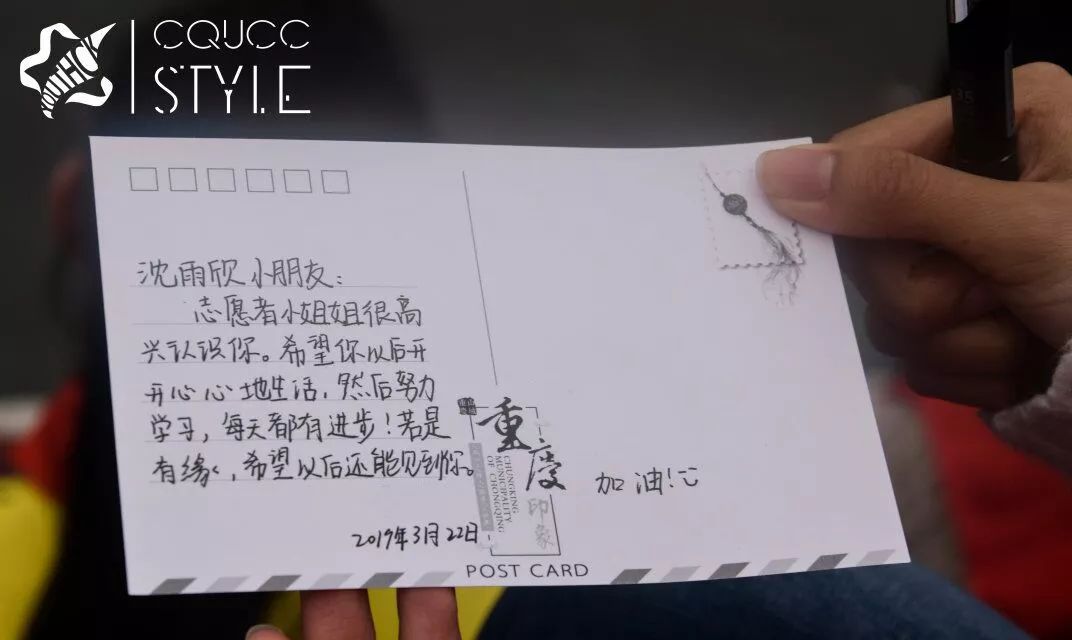 CQUCC
STYLE
沈雨欣小朋友：
志愿者小姐姐很高
兴认识你。希望你以后开
开心心地生活，然后努力
学习，每天都有进步！若是
有缘，希望以后还能见到你。
2019年3月22日
重庆
印象
CHUNGKING
MUNICIPALITY
OF CHONGQING
加油!
POST CARD